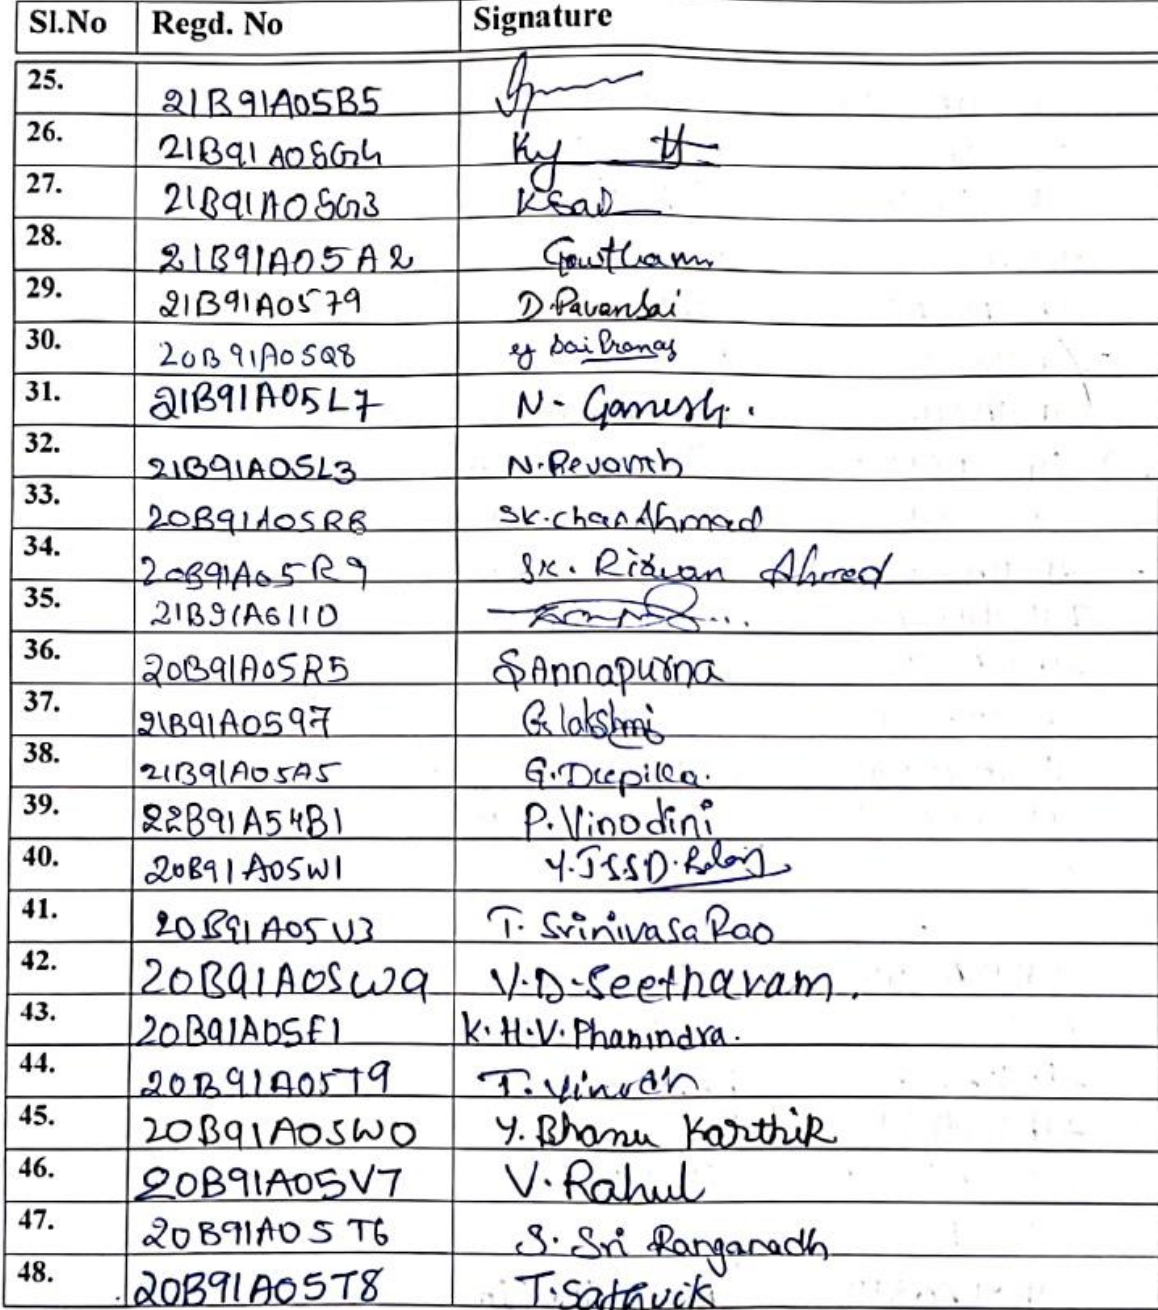 Sl.No Regd. No Signature
25. 21B91A05B5
26. 21B91A05G4
27. 21B91A05G3
28. 21B91A05A2 Gowtham
29. 21B91A0579 D.PavanSai
30. 20B91A05Q8 Sai Pranay
31. 21B91A05L7 N- Ganesh.
32. 21B91A05L3 N.Revanth
33. 20B91A05R8 SK.chan Ahmad
34. 20B91A05R9 SK. Rizwan Ahmed
35. 21B91A6110
36. 20B91A05R5 S Annapurna
37. 21B91A0597 G.lakshmi
38. 21B91A05A5 G.Deepika.
39. 22B91A54B1 P.Vinodini
40. 20B91A05W1 Y.J.S.S.D.
41. 20B91A05V3 T. Srinivasa Rao
42. 20B91A05W9 V.D.Seetharam.
43. 20B91A05F1 K.H.V.Phanindra.
44. 20B91A05T9 T. Vinodh
45. 20B91A05W0 Y. Bhanu Karthik
46. 20B91A05V7 V.Rahul
47. 20B91A05T6 S. Sri Ranganadh
48. 20B91A05T8 T.Sathvik